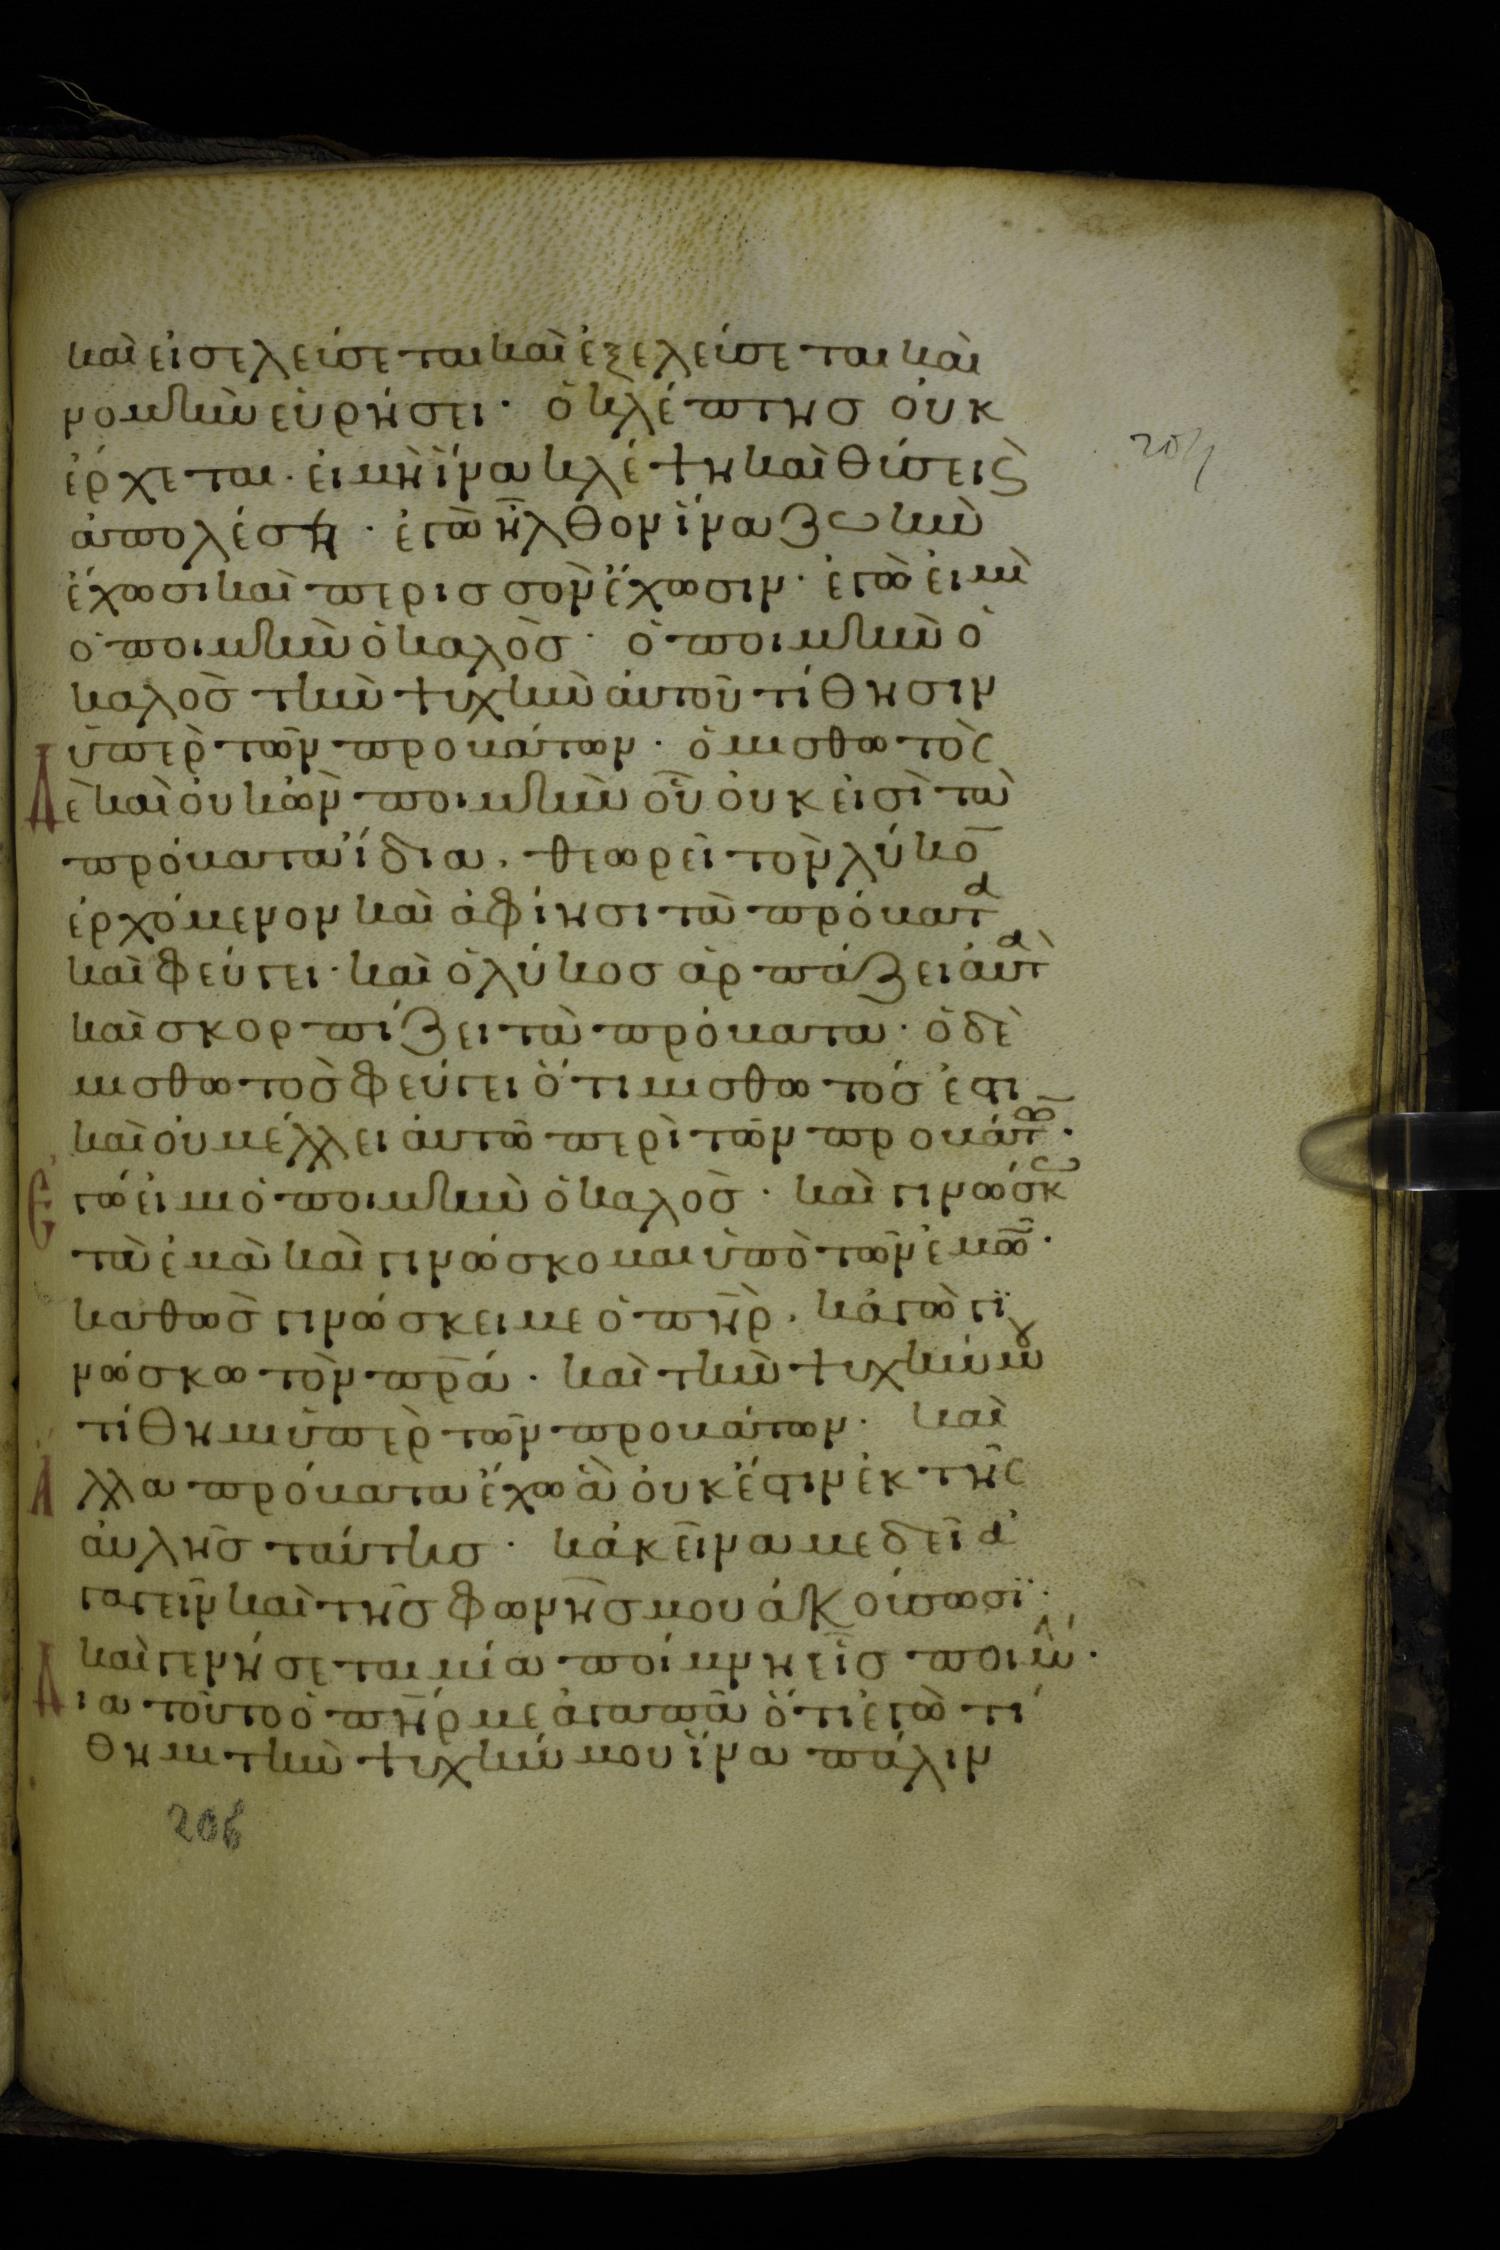 καὶ εἰσελεύσεται καὶ ἐξελεύσεται καὶ
νομὴν εὑρήσει· ὁ κλέπτης οὐκ
204
ἔρχεται· εἰ μὴ ἵνα κλέψη καὶ θύσει ς
ἀπολέση· ἐγὼ ἦλθον ἵνα ζωὴν
ἔχωσι καὶ περισσὸν ἔχωσιν· ἐγὼ εἰμὶ
ὁ ποιμὴν ὁ καλὸς· ὁ ποιμὴν ὁ
καλὸς τὴν ψυχὴν αὐτοῦ τίθησιν
ὑπὲρ τῶν προβάτων· ὁ μισθωτὸς
Δὲ καὶ οὐκ ὢν ποιμὴν οὗ οὐκ εἰσὶ τὰ
πρόβατα ἴδια, θεωρεῖ τὸν λύκο̄
ἐρχόμενον καὶ ἀφίησι τὰ πρόβατα
καὶ φεύγει· καὶ ὁ λύκος ἁρπάζει αὐτὰ
καὶ σκορπίζει τὰ πρόβατα· ὁ δὲ
μισθωτὸς φεύγει ὅτι μισθωτός ἐστι
καὶ οὐ μέλλει αὐτῶ περὶ τῶν προβάτω̄·
Ἐγώ εἰμι ὁ ποιμὴν ὁ καλὸς· καὶ γινώσκω
τὰ ἐμὰ καὶ γινώσκομαι ὑπὸ τῶν ἐμῶ̄·
καθὼς γινώσκει με ὁ πη̄ρ, κἀγὼ γι
νώσκω τὸν πρ̄α· καὶ τὴν ψυχήν μου
τίθημι ὑπὲρ τῶν προβάτων· καὶ
Ἄλλα πρόβατα ἔχω ἃ οὐκ ἔστιν ἐκ τῆς
αὐλῆς ταύτης· κἀκεῖνα με δεῖ ἀ
γαγεῖν καὶ τῆς φωνῆς μου ἀκούσωσϊ·
καὶ γενήσεται μία ποίμνη εἷς ποιμήν·
Δια τοῦτο ὁ πη̄ρ με ἀγαπᾶ ὅτι ἐγὼ τί
θημι τὴν ψυχήν μου ἵνα πάλιν
206